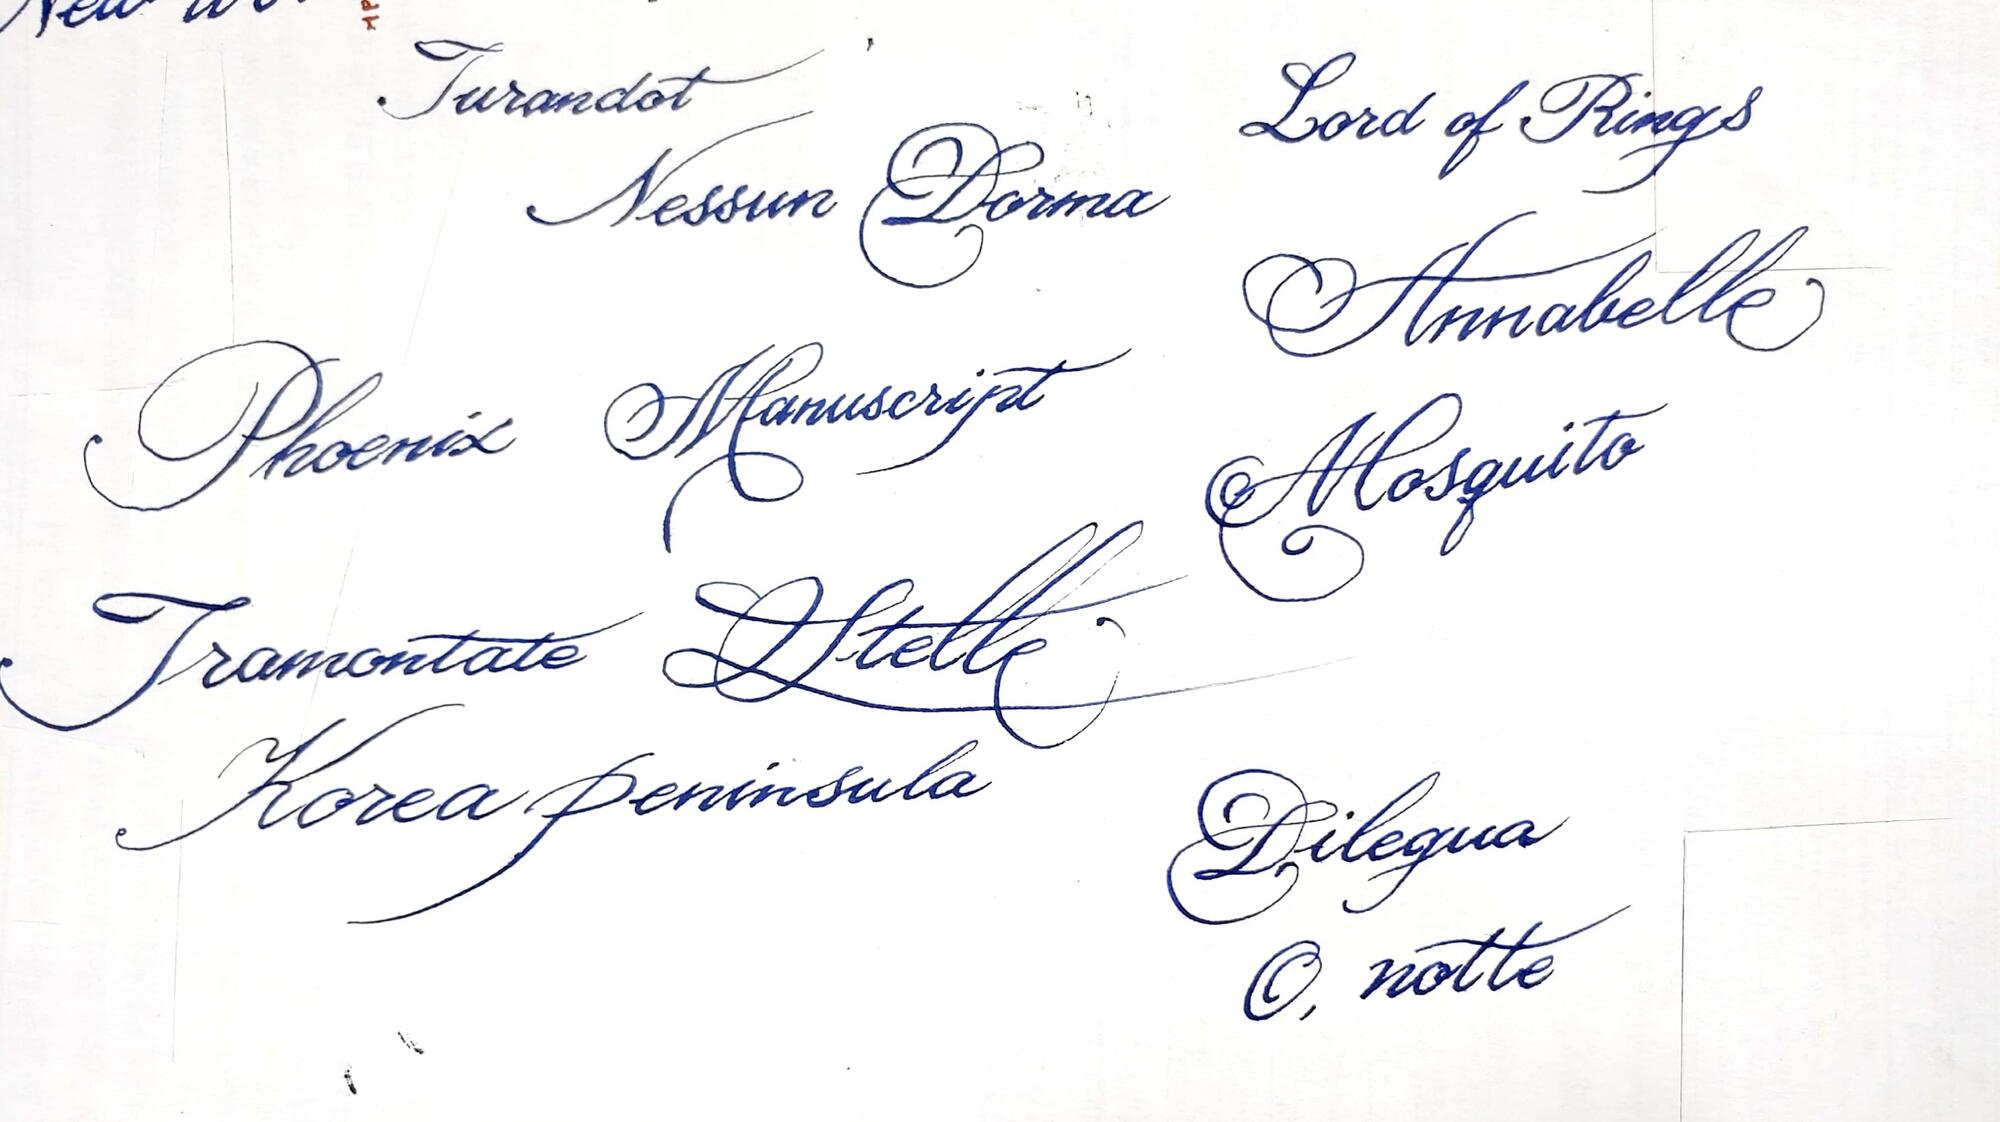 New
Turandot
Nessun Dorma
Lord of Rings
Annabelle
Phoenix Manuscript
Mosquito
Tramontate Stelle
Korea peninsula
Dilegua
O, notte